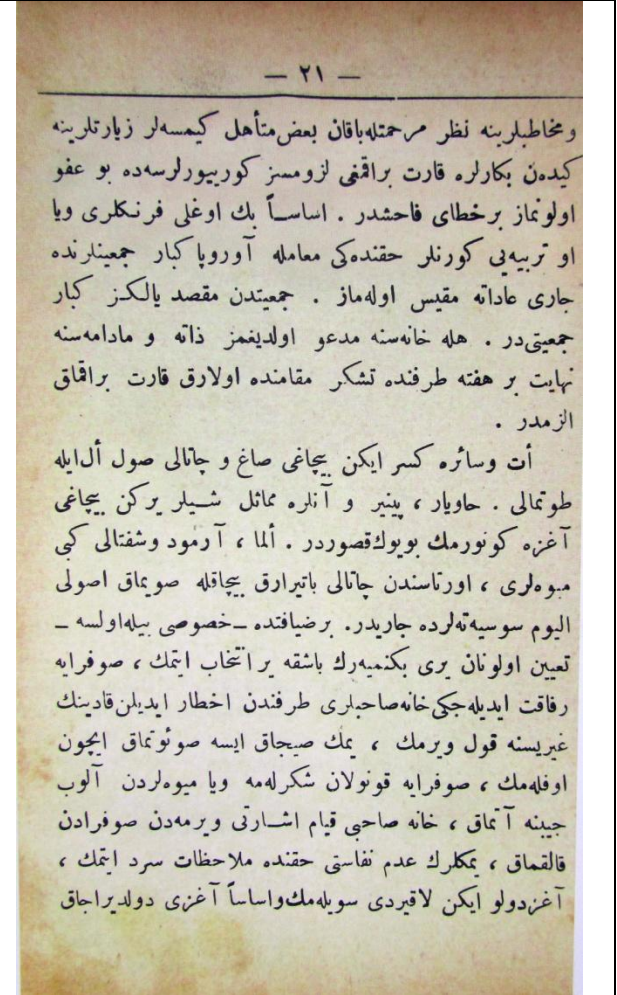 — ٢١ —
ومخاطبلرينه نظر مرحمتله‌باقان بعض‌متأهل كيمسه‌لر زيارتلرينه
كيدەن بكارلره قارت براقمغى لزومسز كوريیورلرسه‌ده بو عفو
اولونماز برخطای فاحشدر . اساســاً بك اوغلى فرنكلرى ويا
او تربيه‌يى كورنلر حقنده‌كى معامله آوروپا كبار جمعيتلرنده
جارى عاداته مقيس اوله‌ماز . جمعيتدن مقصد يالكز كبار
جمعيتى‌در . هله خانه‌سنه مدعو اولديغمز ذاته و مادامه‌سنه
نهايت بر هفته ظرفنده تشكر مقامنده اولارق قارت براقماق
الزمدر .
أت وسائره كسر ايكن بيچاغى صاغ و چاتالى صول أل‌ايله
طوتمالى . حاويار ، پينير و آنلره مماثل شــيلر يركن بيچاغى
آغزه كوتورمك بويوك‌قصوردر . ألما ، آرمود وشفتالى كبى
ميوه‌لرى ، اورتاسندن چاتالى باتيرارق بيچاقله صويماق اصولى
اليوم سوسيه‌ته‌لرده جاريدر. برضيافتده ــ خصوصى بيله‌اولسه ــ
تعيين اولونان يرى بكنميه‌رك باشقه ير انتخاب ايتمك ، صوفرايه
رفاقت ايديله‌جكى خانه‌صاحبلرى طرفندن اخطار ايديلن‌قادينك
غيريسنه قول ويرمك ، يمك صيجاق ايسه صوئوتماق ايچون
اوفله‌مك ، صوفرايه قونولان شكرله‌مه ويا ميوه‌لردن آلوب
جيبنه آتماق ، خانه صاحبى قيام اشــارتى ويرمه‌دن صوفرادن
قالقماق ، يمكلرك عدم نفاستى حقنده ملاحظات سرد ايتمك ،
آغزدولو ايكن لاقيردى سويله‌مك‌واساساً آغزى دولديراجاق